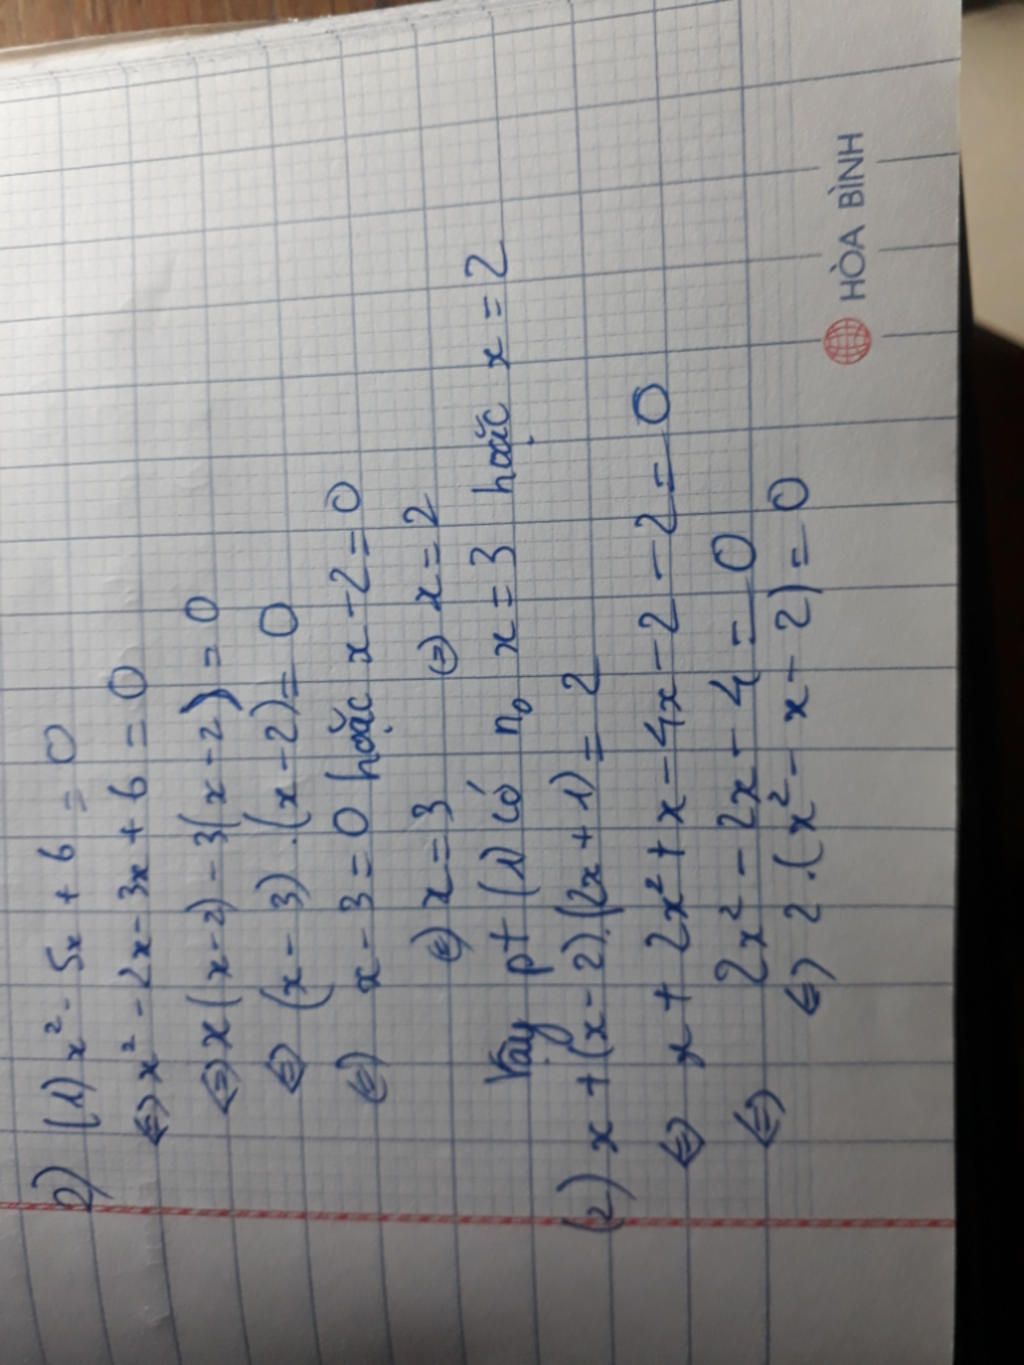 2) (1) x² - 5x + 6 = 0
⇔ x² - 2x - 3x + 6 = 0
⇔ x(x-2) - 3(x-2) = 0
⇔ (x - 3).(x - 2) = 0
⇔ x - 3 = 0 hoặc x - 2 = 0
⇔ x = 3 ⇔ x = 2
Vậy pt (1) có n₀ x = 3 hoặc x = 2
(2) x + (x - 2).(2x + 1) = 2
⇔ x + 2x² + x - 4x - 2 - 2 = 0
⇔ 2x² - 2x - 4 = 0
⇔ 2.(x² - x - 2) = 0
HÒA BÌNH